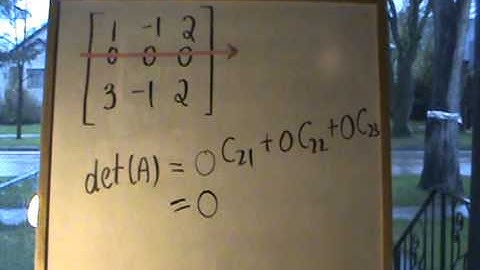 1 -1 2
0 0 0
3 -1 2
det(A) = 0C₂₁ + 0C₂₂ + 0C₂₃
= 0